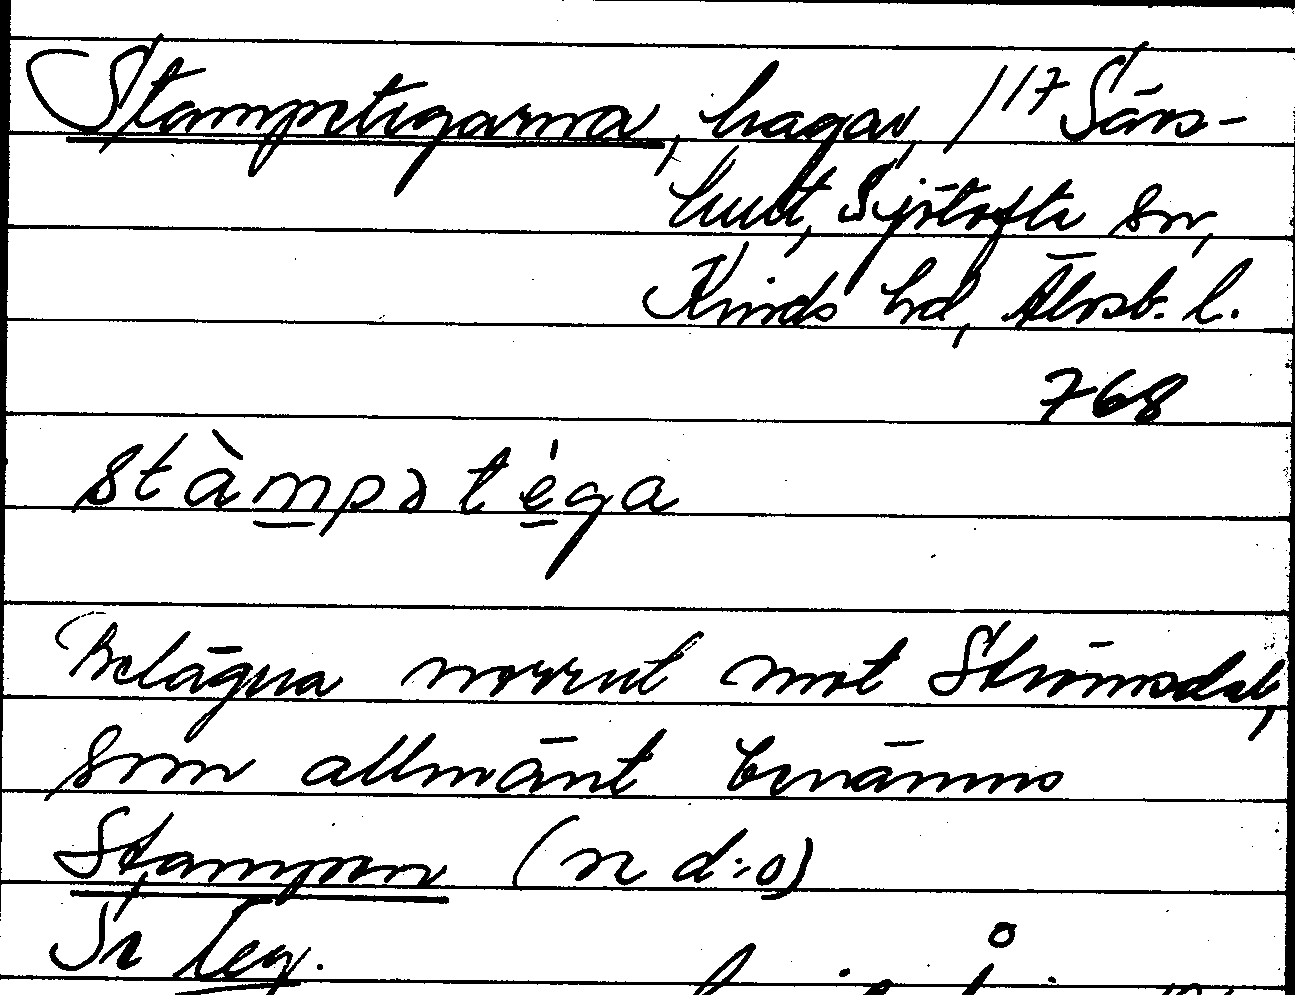 Stampetegarna, hagar, 1/17 Särs-
hult, Sjötofta sn,
Kinds hd, Älvsb. l.
768
stàmpət éga
Belägna norrut mot Strömsdal,
som allmänt benämns
Stampen (n d:o)
Se teg.